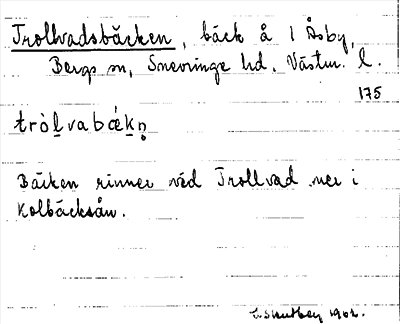 Trollvadsbäcken, bäck å 1 Åsby,
Bergs sn, Snevringe hd. Västm. l.
175
tròl̲vabǽk̲n̥
Bäcken rinner vid Trollvad ner i
Kolbäcksån.
1962.